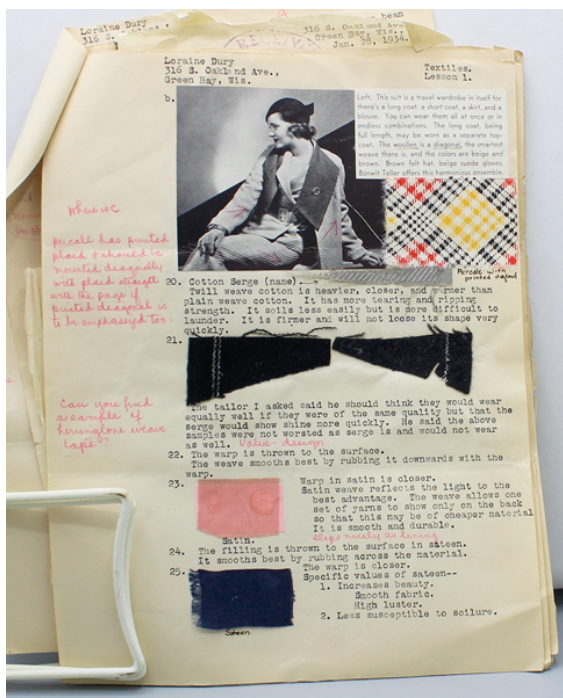 Loraine Dury
316 S.
bean
316 S. Oakland Ave.
Green Bay, Wis.,
Jan. 28, 1934.
RECEIV
Loraine Dury
316 S. Oakland Ave.,
Green Bay, Wis.
Textiles.
Lesson 1.
b.
Left. This suit is a travel wardrobe in itself for
there's a long coat, a short coat, a skirt, and a
blouse. You can wear them all at once or in
endless combinations. The long coat, being
full length, may be worn as a separate top-
coat. The woollen is a diagonal, the smartest
weave there is, and the colors are beige and
brown. Brown felt hat, beige suede gloves.
Bonwit Teller offers this harmonious ensemble.
Where is c
Percale has printed
plaid & should be
mounted diagonally
with plaid straight
with the page if
printed diagonal is
to be emphasized too.
Percale with
printed
20. Cotton Serge (name)
Twill weave cotton is heavier, closer, and warmer than
plain weave cotton. It has more tearing and ripping
strength. It soils less easily but is more difficult to
launder. It is firmer and will not loose its shape very
quickly.
21.
Can you find
a sample of
herringbone weave
tape?
The tailor I asked said he should think they would wear
equally well if they were of the same quality but that the
serge would show shine more quickly. He said the above
samples were not worsted as serge is and would not wear
as well. Value - design
22. The warp is thrown to the surface.
The weave smooths best by rubbing it downwards with the
warp.
23.
Warp in satin is closer.
Satin weave reflects the light to the
best advantage. The weave allows one
set of yarns to show only on the back
so that this may be of cheaper material
It is smooth and durable.
slips nicely as lining
Satin.
24. The filling is thrown to the surface in sateen.
It smooths best by rubbing across the material.
The warp is closer.
25.
Specific values of sateen--
1. Increases beauty.
Smooth fabric.
High luster.
2. Less susceptible to soilure.
Sateen